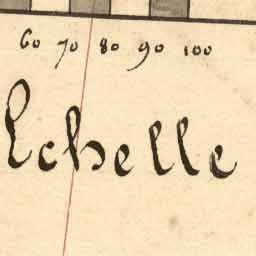 60 70 80 90 100
Echelle